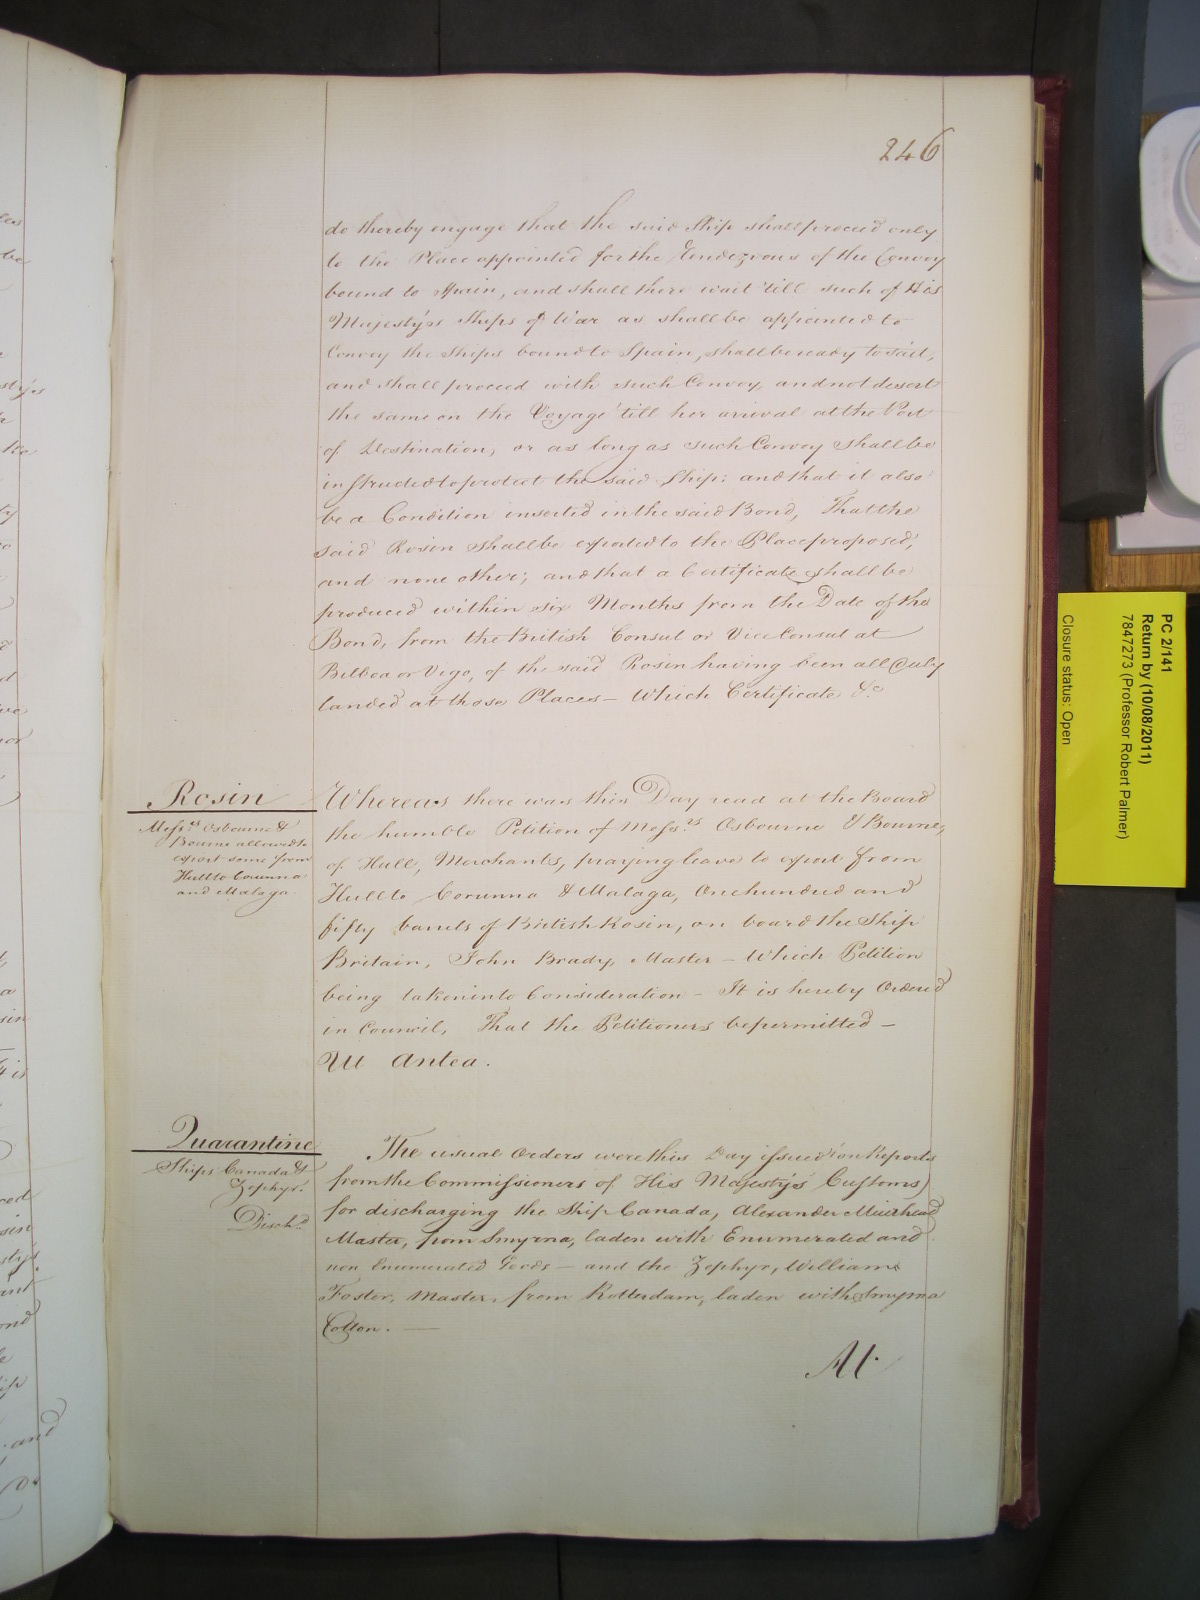 246
do thereby engage that the said Ship shall proceed only
to the Place appointed for the Rendezvous of the Convoy
bound to Spain, and shall there wait 'till such of His
Majesty's Ships of War as shall be appointed to
Convoy the Ships bound to Spain, shall be ready to sail,
and shall proceed with such Convoy, and not desert
the same on the Voyage 'till her arrival at the Port
of Destination, or as long as such Convoy shall be
instructed to protect the said Ship: and that it also
be a Condition inserted in the said Bond, That the
said Rosin shall be exported to the Place proposed,
and none other; and that a Certificate shall be
produced within six Months from the Date of the
Bond, from the British Consul or Vice Consul at
Bilboa or Vigo, of the said Rosin having been all duly
landed at those Places – Which Certificate &c
Rosin
Messrs Osbourne &
Bourne allowed to
export some from
Hull to Corunna
and Malaga.
Whereas there was this Day read at the Board
the humble Petition of Messrs Osbourne & Bourne,
of Hull, Merchants, praying leave to export from
Hull to Corunna & Malaga, One hundred and
fifty barrels of British Rosin, on board the Ship
Britain, John Brady, Master – Which Petition
being taken into Consideration – It is hereby Ordered
in Council, That the Petitioners be permitted –
Ut Antea.
Quarantine
Ships Canada &
Zephyr.
Dischd
The usual Orders were this Day issued on Reports
from the Commissioners of His Majesty's Customs,
for discharging the Ship Canada, Alexander Muirhead
Master, from Smyrna, laden with Enumerated and
non Enumerated Goods – and the Zephyr, William
Foster, Master, from Rotterdam, laden with Smyrna
Cotton. —
At.
PC 2/141
Return by (10/08/2011)
7847273 (Professor Robert Palmer)
Closure status: Open